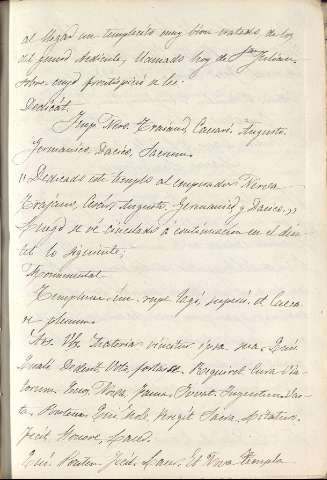 al llegar un templecito muy bien tratado de los
del puend dedicata, llamado hoy de San Julian
sobre cuyo frontispicio se lee.
Dedicát.
Imp. Nerv. Trajano, Caesari, Augusto,
Germanico, Dacico, Sacrum.
"Dedicado este templo al emperador Nerva
Trajano, Cesar, Augusto, Germanico y Dacico,"
Luego se vé cincelado á continuacion en el din
tel lo siguiente;
Monumental
Templum in rupe Tagi, superis, et Caesa
re plenum.
Ars. Ubi materia vincitur ipsa sua. Quis
Quali Dederit Voto fortasse. Requiret Cura Via
torum. Quos Nova Fama Iuvat. Ingentem Vas
ta. Pontem Qui Mole. Peregit Sacra. Litaturo.
Fecit. Honore. Lacer.
Qui. Pontem. Fecit. Lacer. Et Nova Templa